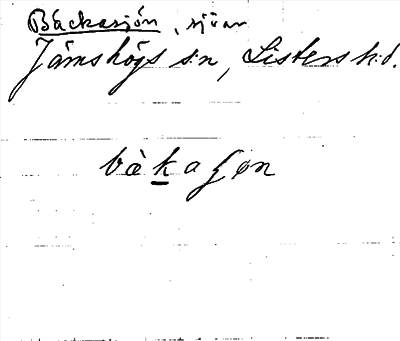 Bäckasjön, sjöar
Jämshögs s:n, Listers h:d.
bàkaʃøn